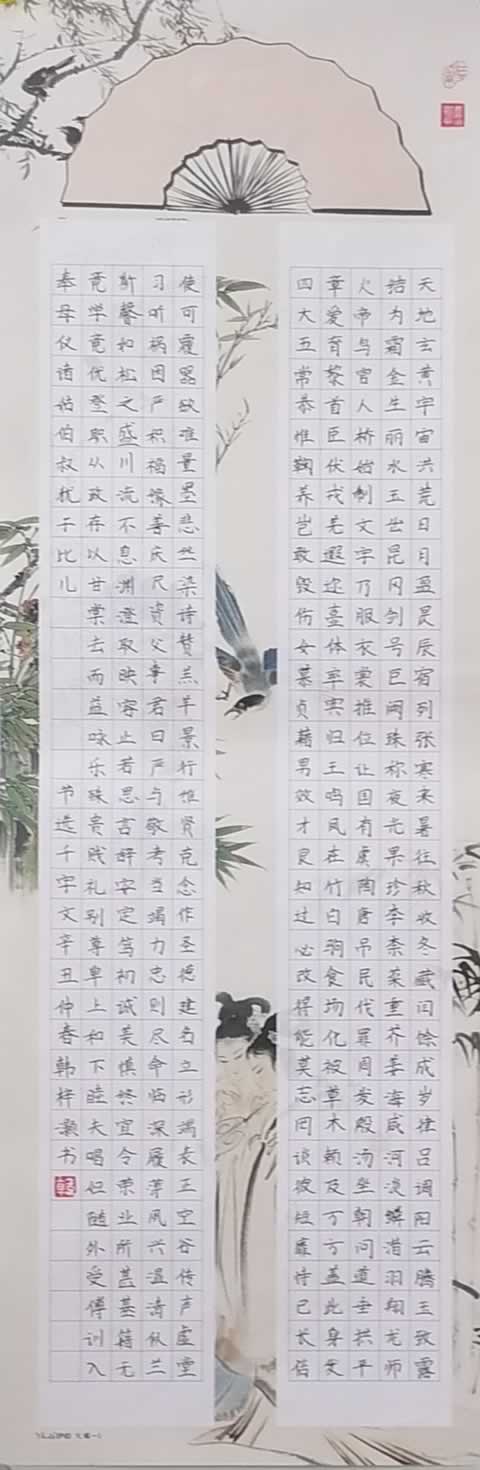 天地玄黄宇宙洪荒日月盈昃辰宿列张寒来暑往秋收冬藏闰馀成岁律吕调阳云腾王致露
结为霜金生丽水玉出昆冈剑号巨阙珠称夜光果珍李柰菜重芥姜海咸河淡鳞潜羽翔龙师
火帝鸟官人桥始制文字乃服衣裳推位让国有虞陶唐吊民伐罪周发殷汤坐朝问道垂拱平
章爱育黎首臣伏戎羌遐迩壹体率宾归王鸣凤在竹白驹食场化被草木赖及万方盖此身发
四大五常恭惟鞠养岂敢毁伤女慕贞藉男效才良知过必改得能莫忘罔谈彼短靡恃己长信
使可覆器欲难量墨悲丝染诗赞羔羊景行惟贤克念作圣德建名立形端表正空谷传声虚堂
习听祸因严积福缘善庆尺资父事君曰严与敬孝当竭力忠则尽命临深履薄夙兴温凊似兰
斯馨如松之盛川流不息渊澄取映容止若思言辞安定笃初诚美慎终宜令荣业所甚基籍无
竟学竟优登职从政存以甘棠去而益咏乐殊贵贱礼别尊卑上和下睦夫唱妇随外受傅训入
奉母仪诸姑伯叔犹子比儿 节选千字文辛丑仲春韩梓灏书